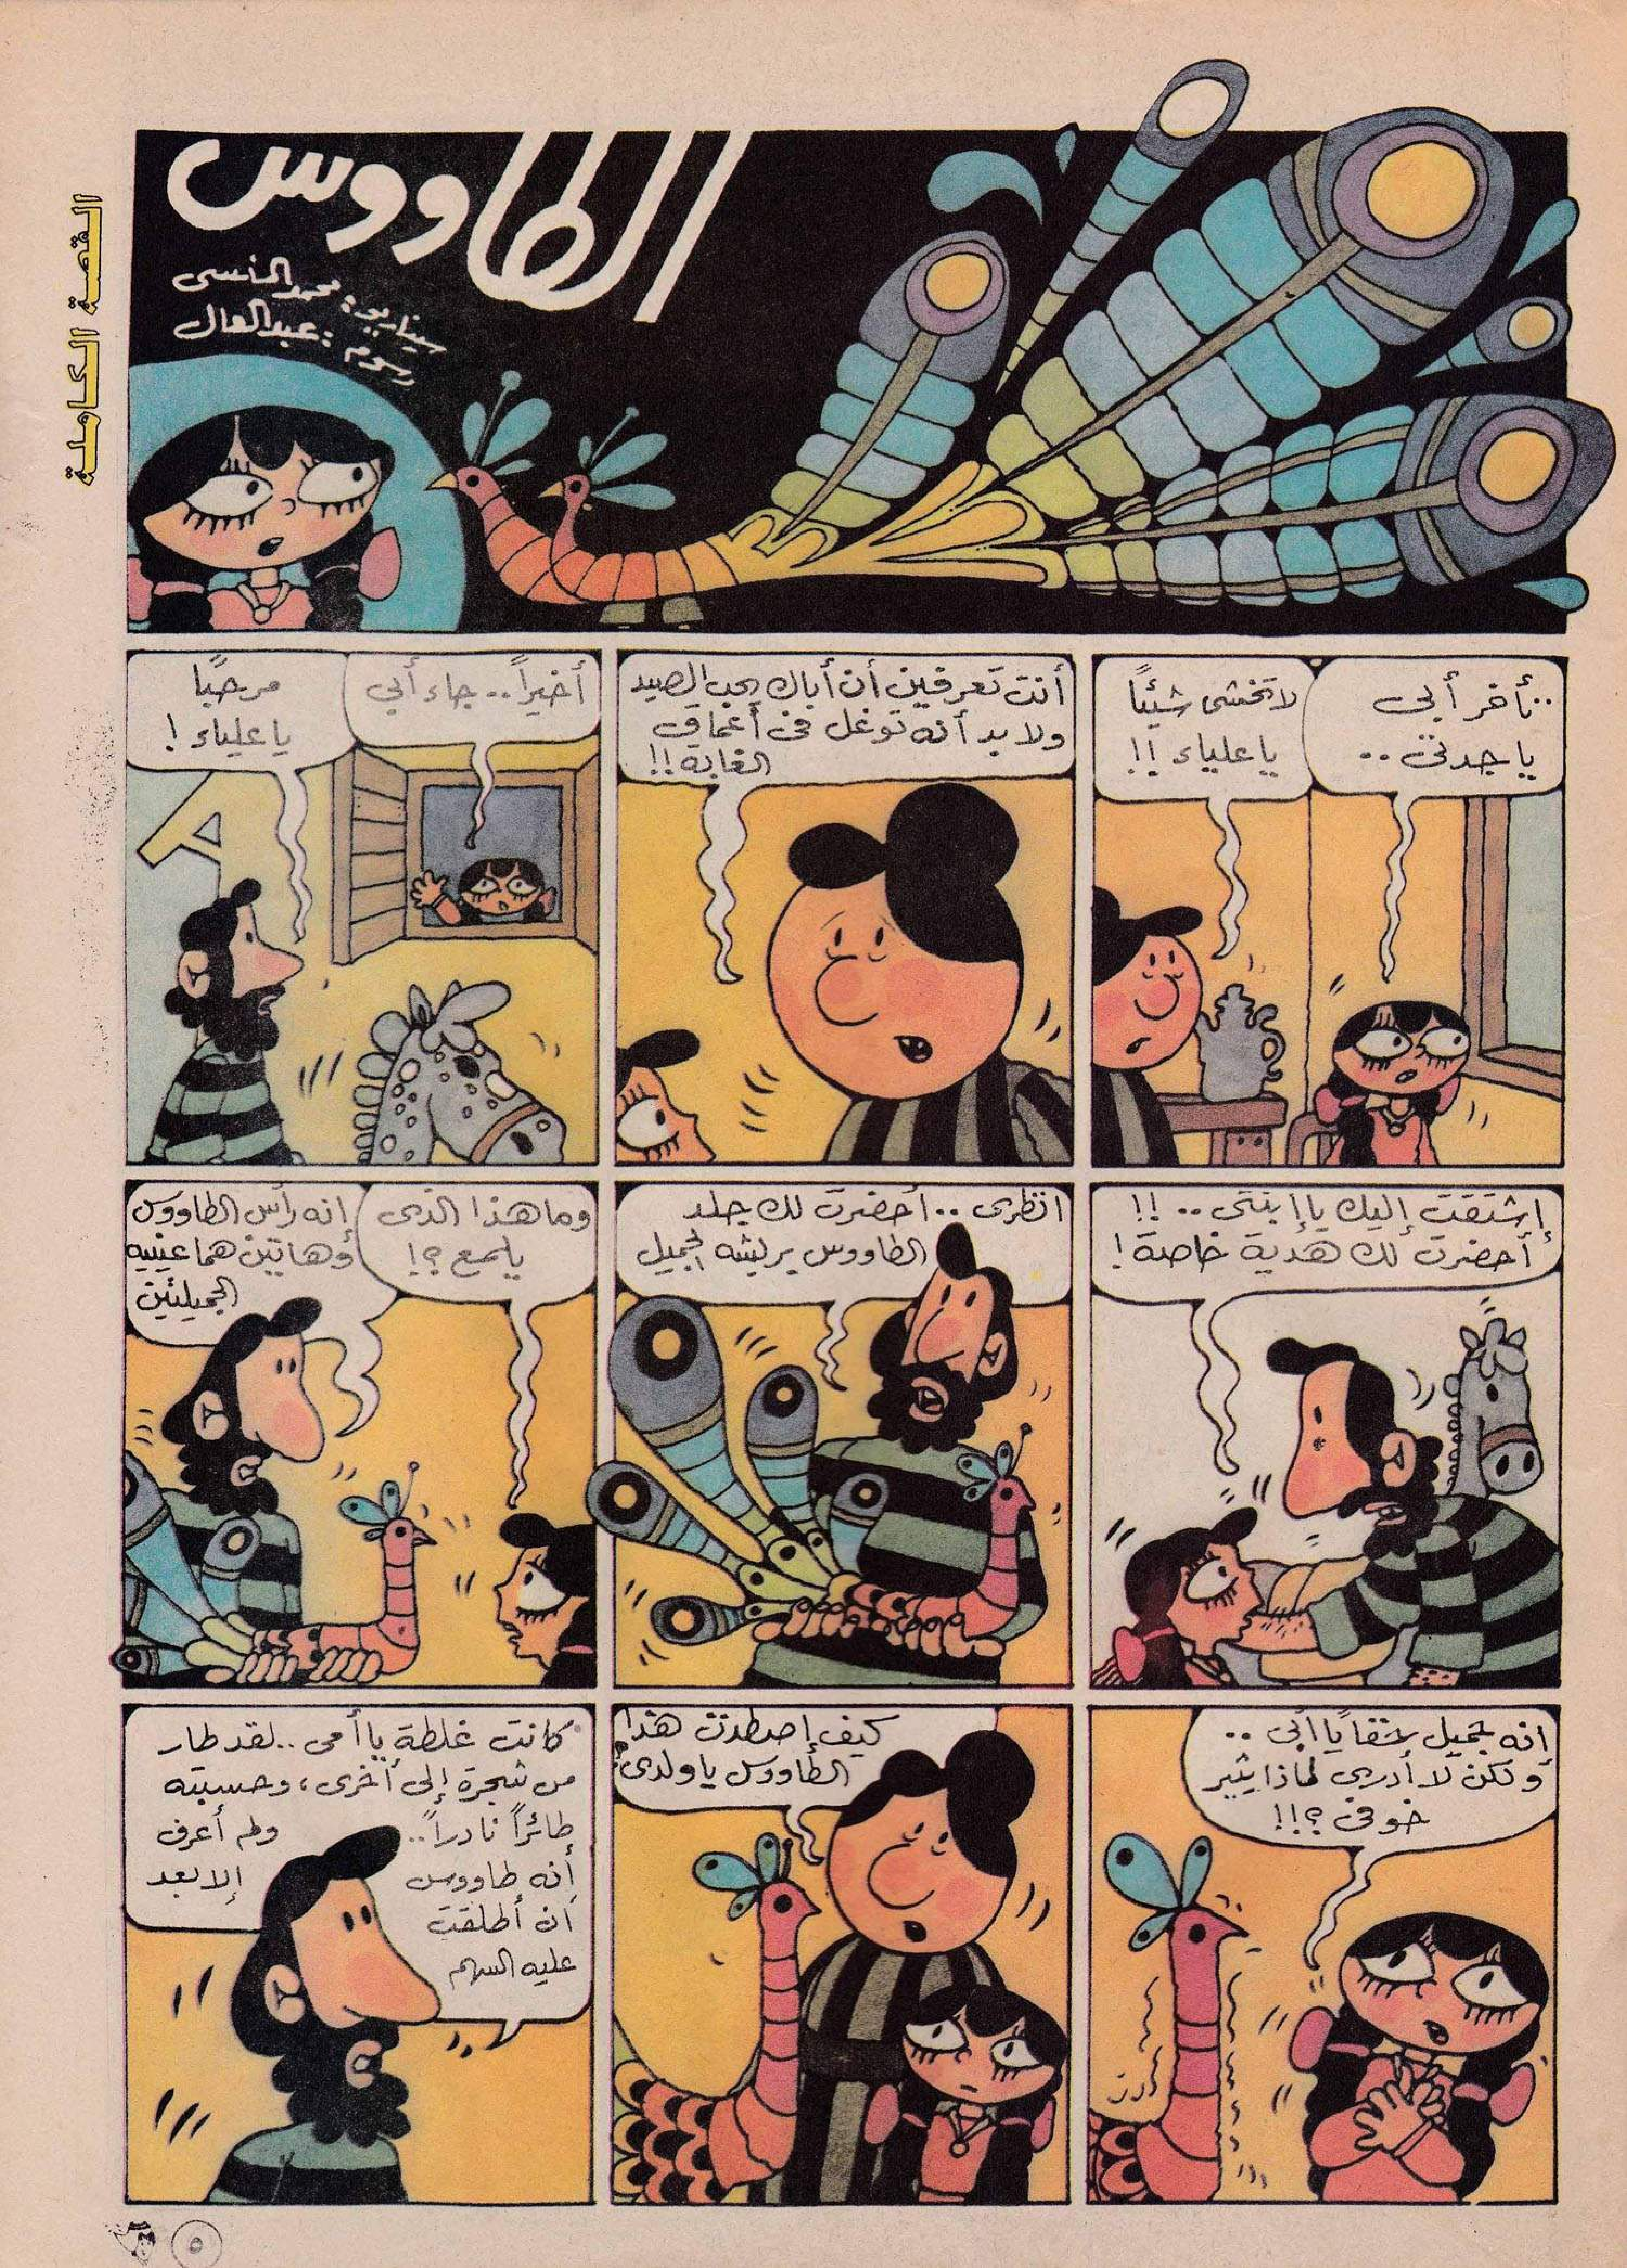 القصة الكاملة
الطاووس
سيناريو: محمد المنسى
رسوم: عبدالعال
تأخر أبى
ياجدتى ..
لا تخشى شيئاً
ياعلياء !!
أنت تعرفين أن أباك يحب الصيد
ولابد أنه توغل فى أعماق
الغابة !!
أخيراً .. جاء أبي
مرحبًا
ياعلياء !
إشتقت إليك ياإبنتى .. !!
أحضرت لك هدية خاصة !
انظرى .. أحضرت لك جلد
الطاووس بريشه الجميل
وما هذا الذى
يلمع ؟!
انه رأس الطاووس
وهاتين هما عينيه
الجميلتين
إنه جميل حقاً يا أبى ..
ولكن لا أدرى لماذا يثير
خوفى ؟!!
كيف إصطدت هذا
الطاووس ياولدى؟
كانت غلطة ياأمى .. لقد طار
من شجرة إلى أخرى ، وحسبته
طائراً نادراً ..
ولم أعرف
أنه طاووس
إلا بعد
أن أطلقت
عليه السهم
٥